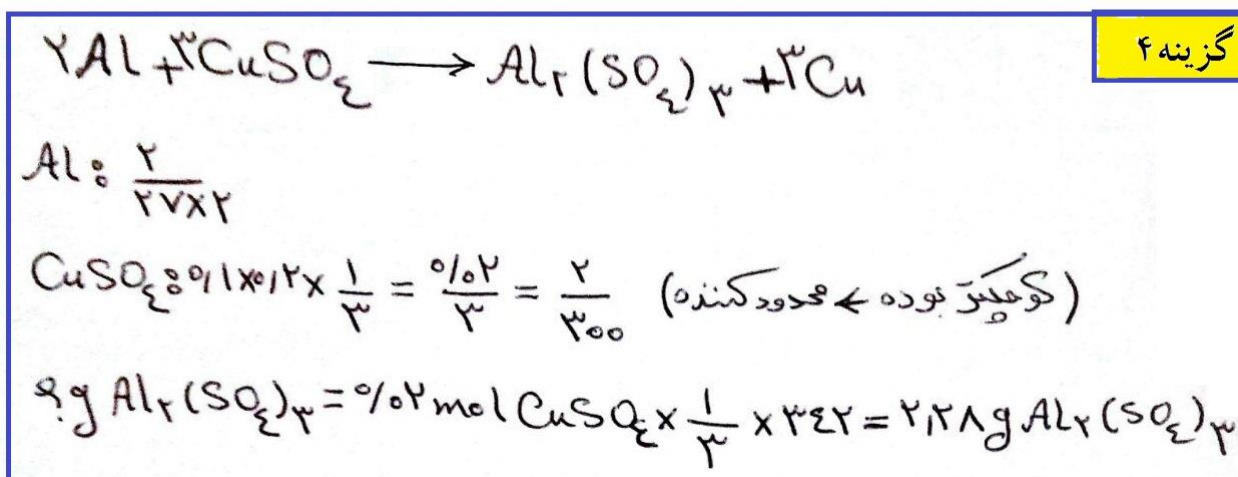 گزینه ۴
۲Al + ۳CuSO₄ ⟶ Al₂(SO₄)₃ + ۳Cu
Al: ۲/(۲۷×۲)
CuSO₄: ۰/۱×۰/۲×۱/۳ = ۰/۰۲/۳ = ۲/۳۰۰ (کوچکتر بوده ← محدودکننده)
؟g Al₂(SO₄)₃ = ۰/۰۲ mol CuSO₄ × ۱/۳ × ۳۴۲ = ۲,۲۸g Al₂(SO₄)₃